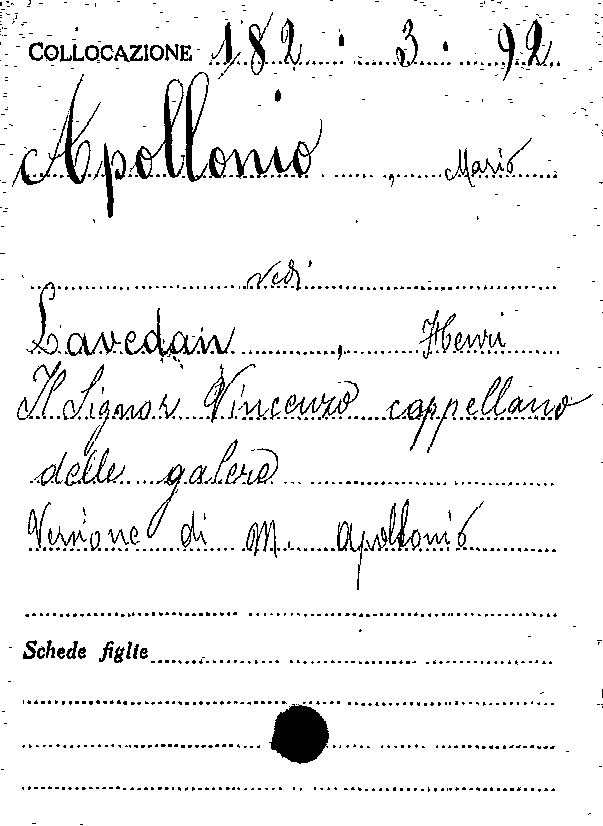 COLLOCAZIONE 182 . 3 . 92
Apollonio , Mario
vedi
Lavedan , Henri
Il Signor Vincenzo cappellano
delle galere
Versione di M. Apollonio
Schede figlie